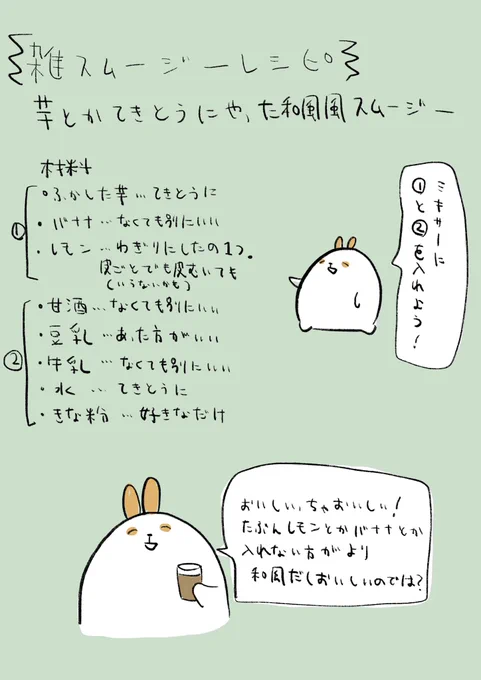 雑スムージーレシピ
芋とかてきとうにやった和風風スムージー
材料
①
・ふかした芋…てきとうに
・バナナ…なくても別にいい
・レモン…わぎりにしたの1つ。
皮ごとでも皮むいても
(いらないかも)
②
・甘酒…なくても別にいい
・豆乳…あった方がいい
・牛乳…なくても別にいい
・水…てきとうに
・きな粉…好きなだけ
ミキサーに
①と②を入れよう!
おいしいっちゃおいしい!
たぶんレモンとかバナナとか
入れない方がより
和風だしおいしいのでは?